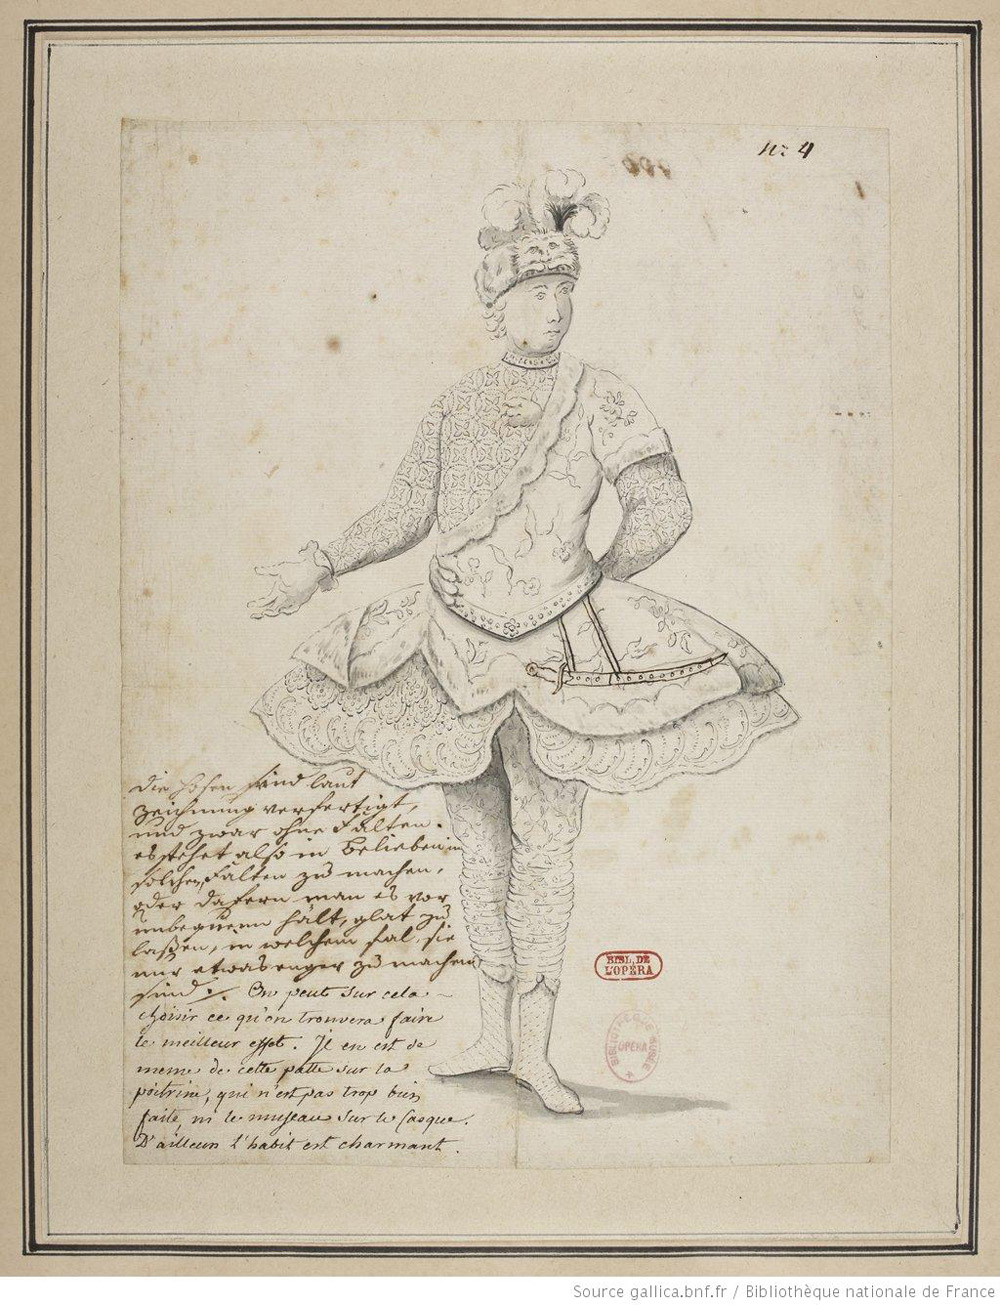 nr 4
die Hosen sind laut
Zeichnung verfertigt,
und zwar ohne Falten.
es stehet also in Belieben in
solchen, Falten zu machen,
oder dafern man es vor
unbequem hält, glat zu
laßen, in welchem fal, sie
nur etwas enger zu machen
sind. On peut sur cela
choisir ce qu'on trouvera faire
le meilleur effet. Il en est de
meme de cette patte sur la
poitrine, qui n'est pas trop bien
faite, ni le museau sur le Casque.
D'ailleurs l'habit est charmant.
BIBL. DE
L'OPÉRA
BIBLIOTHÈQUE MUSÉE
OPÉRA
Source gallica.bnf.fr / Bibliothèque nationale de France